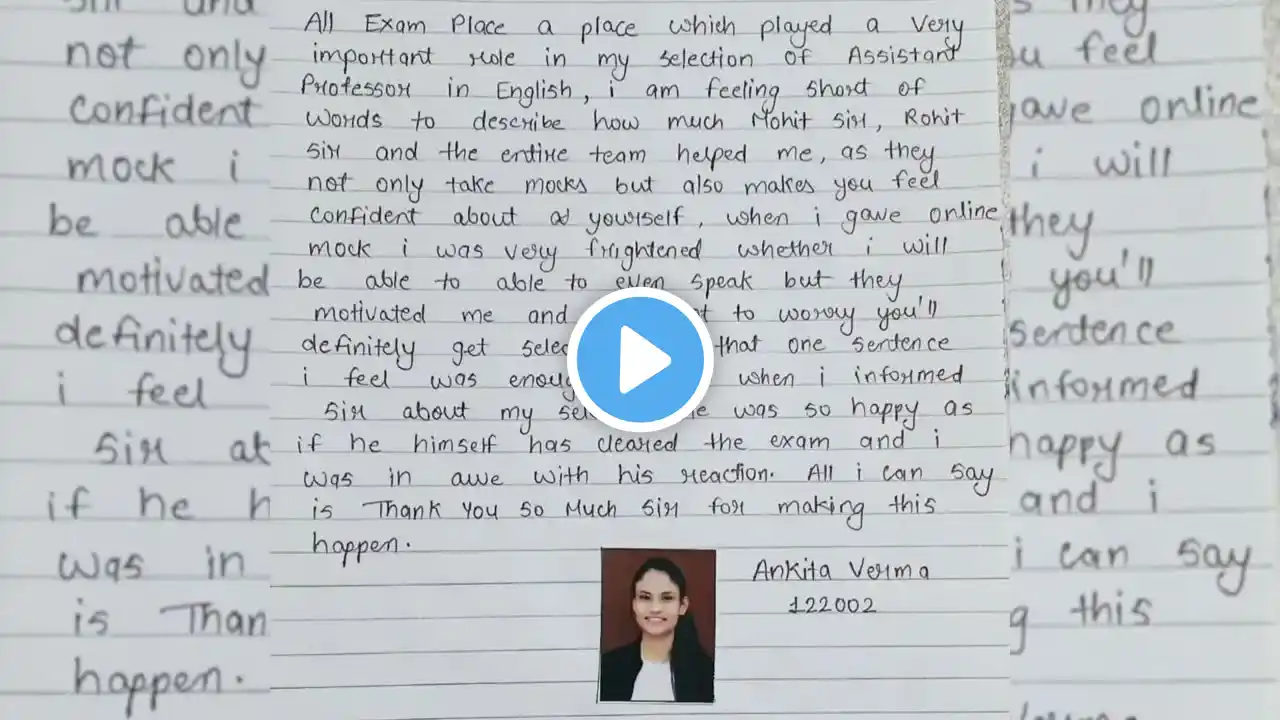 All Exam Place a place which played a very
important role in my selection of Assistant
Professor in English, i am feeling short of
words to describe how much Mohit sir, Rohit
sir and the entire team helped me, as they
not only take mocks but also makes you feel
confident about yourself, when i gave online
mock i was very frightened whether i will
be able to able to even speak but they
motivated me and to worry you'll
definitely get that one sentence
i feel was when i informed
sir about my was so happy as
if he himself has cleared the exam and i
was in awe with his reaction. All i can say
is Thank You so Much sir for making this
happen.
Ankita Verma
122002